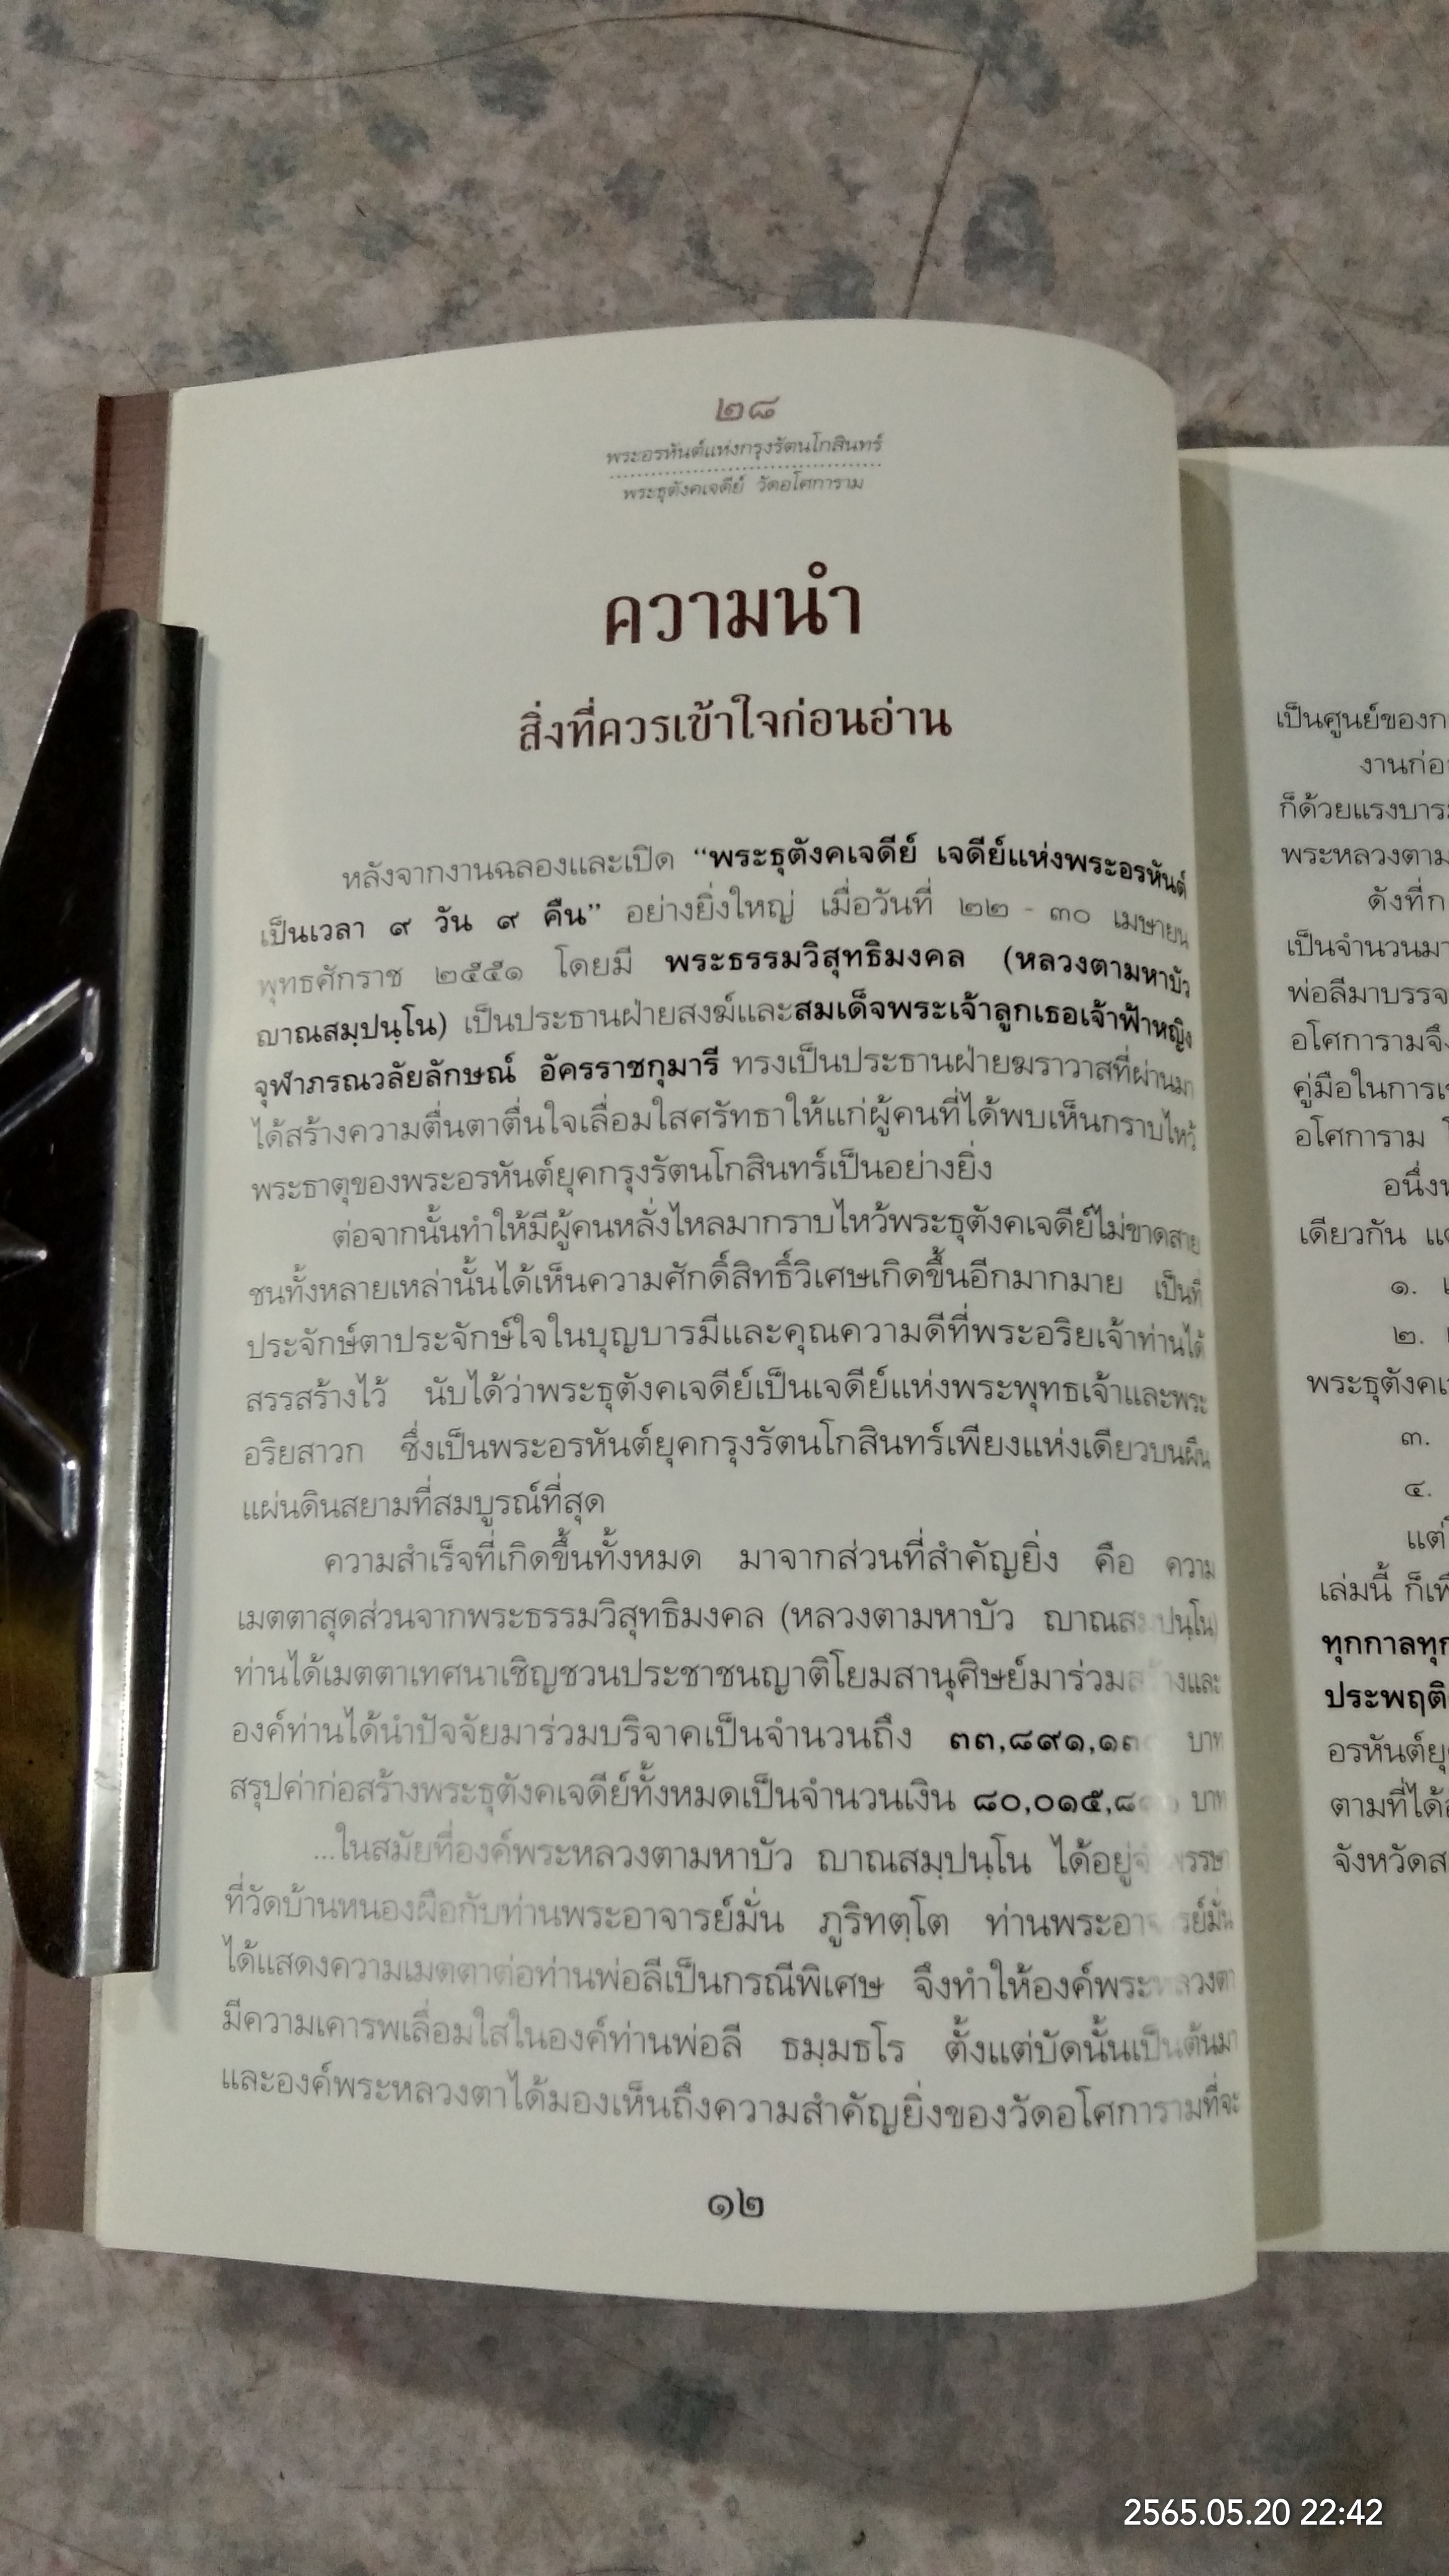 ๒๘
พระอรหันต์แห่งกรุงรัตนโกสินทร์
พระธุตังคเจดีย์ วัดอโศการาม
ความนำ
สิ่งที่ควรเข้าใจก่อนอ่าน
หลังจากงานฉลองและเปิด “พระธุตังคเจดีย์ เจดีย์แห่งพระอรหันต์
เป็นเวลา ๙ วัน ๙ คืน” อย่างยิ่งใหญ่ เมื่อวันที่ ๒๒ - ๓๐ เมษายน
พุทธศักราช ๒๕๕๑ โดยมี พระธรรมวิสุทธิมงคล (หลวงตามหาบัว
ญาณสมฺปนฺโน) เป็นประธานฝ่ายสงฆ์และสมเด็จพระเจ้าลูกเธอเจ้าฟ้าหญิง
จุฬาภรณวลัยลักษณ์ อัครราชกุมารี ทรงเป็นประธานฝ่ายฆราวาสที่ผ่านมา
ได้สร้างความตื่นตาตื่นใจเลื่อมใสศรัทธาให้แก่ผู้คนที่ได้พบเห็นกราบไหว้
พระธาตุของพระอรหันต์ยุคกรุงรัตนโกสินทร์เป็นอย่างยิ่ง
ต่อจากนั้นทำให้มีผู้คนหลั่งไหลมากราบไหว้พระธุตังคเจดีย์ไม่ขาดสาย
ชนทั้งหลายเหล่านั้นได้เห็นความศักดิ์สิทธิ์วิเศษเกิดขึ้นอีกมากมาย เป็นที่
ประจักษ์ตาประจักษ์ใจในบุญบารมีและคุณความดีที่พระอริยเจ้าท่านได้
สรรสร้างไว้ นับได้ว่าพระธุตังคเจดีย์เป็นเจดีย์แห่งพระพุทธเจ้าและพระ
อริยสาวก ซึ่งเป็นพระอรหันต์ยุคกรุงรัตนโกสินทร์เพียงแห่งเดียวบนผืน
แผ่นดินสยามที่สมบูรณ์ที่สุด
ความสำเร็จที่เกิดขึ้นทั้งหมด มาจากส่วนที่สำคัญยิ่ง คือ ความ
เมตตาสุดส่วนจากพระธรรมวิสุทธิมงคล (หลวงตามหาบัว ญาณสมฺปนฺโน)
ท่านได้เมตตาเทศนาเชิญชวนประชาชนญาติโยมสานุศิษย์มาร่วมสร้างและ
องค์ท่านได้นำปัจจัยมาร่วมบริจาคเป็นจำนวนถึง บาท
สรุปค่าก่อสร้างพระธุตังคเจดีย์ทั้งหมดเป็นจำนวนเงิน บาท
...ในสมัยที่องค์พระหลวงตามหาบัว ญาณสมฺปนฺโน ได้อยู่
ที่วัดบ้านหนองผือกับท่านพระอาจารย์มั่น ภูริทตฺโต ท่านพระอาจารย์มั่น
ได้แสดงความเมตตาต่อท่านพ่อลีเป็นกรณีพิเศษ จึงทำให้องค์พระหลวงตา
มีความเคารพเลื่อมใสในองค์ท่านพ่อลี ธมฺมธโร ตั้งแต่บัดนั้นเป็นต้นมา
และองค์พระหลวงตาได้มองเห็นถึงความสำคัญยิ่งของวัดอโศการามที่จะ
๑๒
เป็นศูนย์ของ
งานก่อ
ก็ด้วยแรง
พระหลวงตาม
ดังที่
เป็นจำนวน
พ่อลีมาบรรจ
อโศการามจึง
คู่มือในการ
อโศการาม
อนึ่ง
เดียวกัน
๑.
๒.
พระธุตังค
๓.
๔.
แต่
เล่มนี้ ก็
ทุกกาลทุก
ประพฤติ
อรหันต์ยุ
ตามที่ได้
จังหวัดส
2565.05.20 22:42